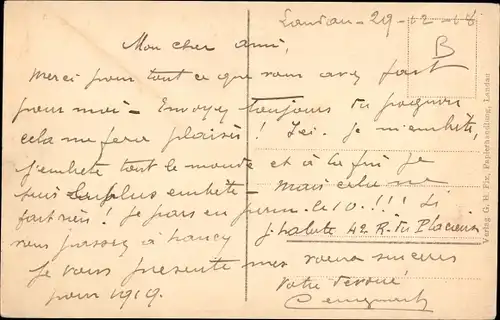 Landau - 29-12-18
B
Mon cher ami,
Merci pour tout ce que vous avez fait
pour moi - Envoyez toujours du
cela me fera plaisir ! Ici. Je m'embête,
j'embête tout le monde et à la fin je
suis le plus embêté - Mais cela ne
fait rien ! Je pars en perm. le 10 !!! Si
vous passez à Nancy j'habite 42 R. du
Je vous présente mes vœux sincères
pour 1919. Votre dévoué
Verlag G. H. Fix, Papierhandlung, Landau